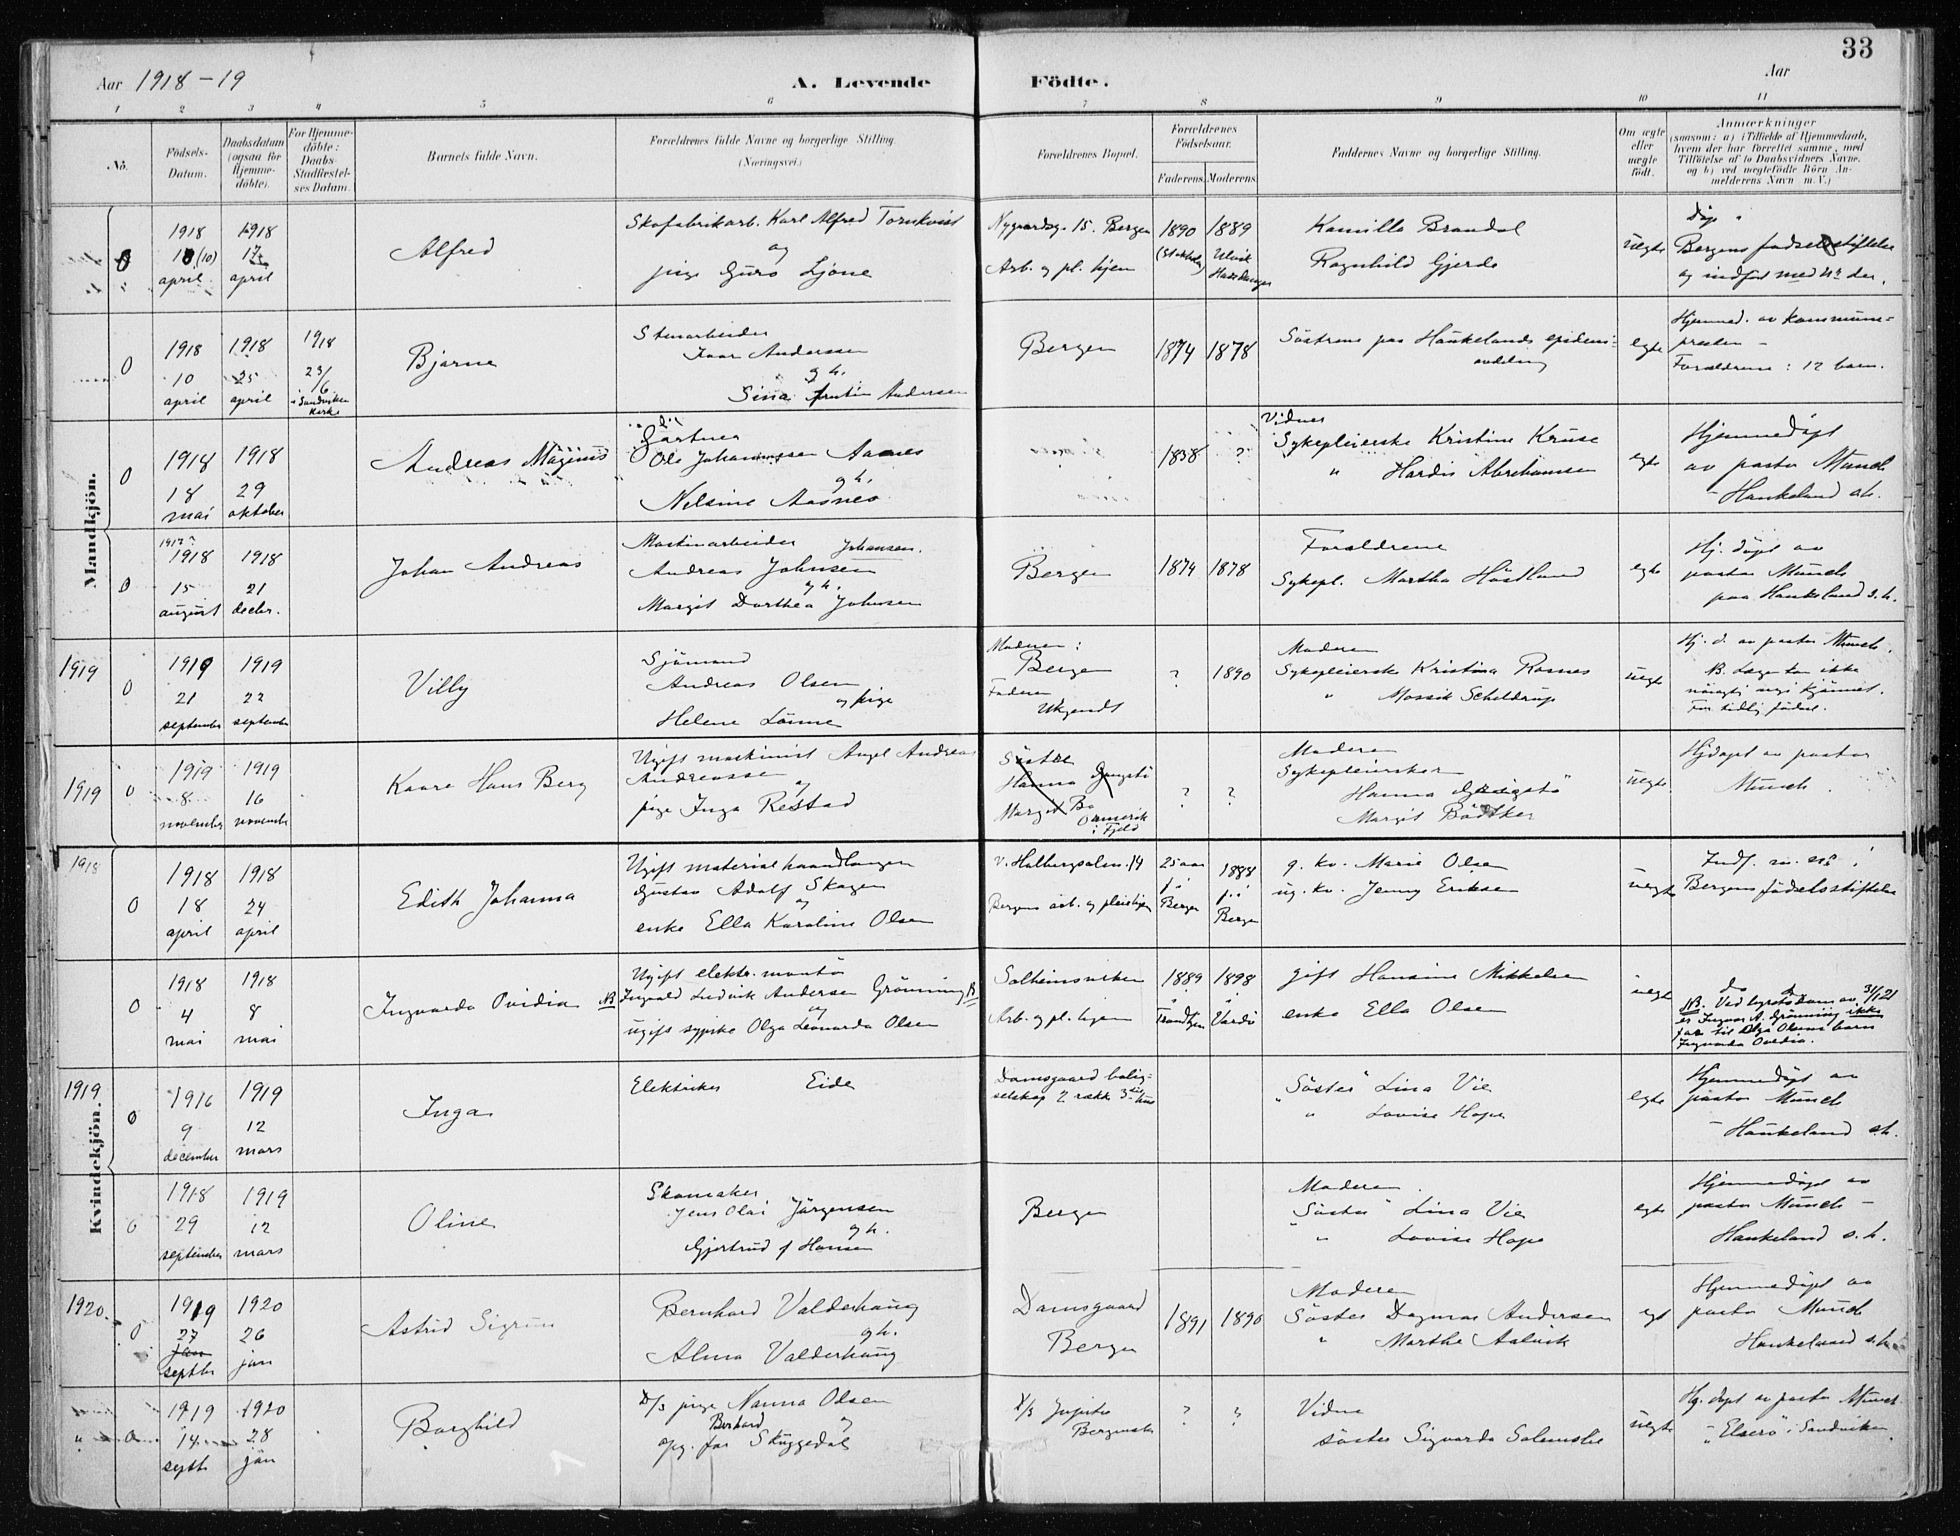 33
Aar 1918-19
A. Levende
Födte.
Aar
1 2 3 4 5 6 7 8 9 10 11
No.
Födsels-
Datum.
Daabsdatum
(ogsaa for
Hjemme-
döbte).
For Hjemme-
döbte:
Daabs-
Stadfæstel-
ses Datum.
Barnets fulde Navn.
Forældrenes fulde Navne og borgerlige Stilling
(Næringsvei.)
Forældrenes Bopæl.
Forældrenes
Födselsaar.
Faderens.
Moderens.
Faddernes Navne og borgerlige Stilling.
Om ægte
eller
uægte
födt.
Anmærkninger
(saasom: a) i Tilfælde af Hjemmedaab,
hvem der har forrettet samme, med
Tilföielse af to Daabsvidners Navne.
og b) ved uægtefödte Börn An-
melderens Navn m. V.)
Mandkjön.
1918
(10)
april
1918
17
april
Alfred
Skofabrikarb. Karl Alfred Tornkvist
og
pige Guro Ljone
Nygaardsg. 15. Bergen
Arb. og pl. hjem
1890
1889
Ulvik
Hardanger
Kamilla Brandal
Ragnhild Gjerde
uegte
Bergens fødselsstiftelse
og indført med nr der.
0
1918
10
april
1918
25
april
1918
23/6
i Sandviken
Kirke
Bjarne
Stenarbeider
Ivar Anderssen
g h.
Sina Andersen
Bergen
1874
1878
Söstrene paa Haukelands epidemi-
avdeling
egte
Hjemmed. av kommune-
presten -
Forældrene: 12 barn.
0
1918
18
mai
1918
29
oktober
Andreas Magnus
Gartner
Ole Johannessen Aasnes
g h.
Nelsine Aasnes
1838
?
Vidner
Sykepleierske Kristine Kruse
" Hardis Abrahamsen
egte
Hjemmedöpt
av pastor Munch
- Haukeland s.h.
0
1917?
1918
15
august
1918
21
decbr.
Johan Andreas
Maskinarbeider
Johansen.
Andreas Johnsen
g h.
Margit Dorthea Johnsen
Bergen
1874
1878
Forældrene
Sykepl. Martha Hustland
egte
Hj. döpt av
pastor Munch
paa Haukeland s.h.
1919
0
1919
21
september
1919
22
september
Villy
Sjömand
Andreas Olsen
og pige
Helene Lönne
Moderen:
Bergen
Faderen
Ukjendt
?
1890
Moderen
Sykepleierske Kristina Rosnes
" Mossik Scheldrup
uegte
Hj. d. av pastor Munch.
For tidlig födsel.
1919
0
1919
8
november
1919
16
november
Kaare Hans Berg
Ugift maskinist Angel Andreas
Andreassen
og
pige Inga Restad
i Fjeld
?
?
Moderen
Sykepleiersker
Hanna Gangstö
Margit Bödtker
uegte
Hjdöpt av pastor
Munch.
Kvindekjön.
1918
0
1918
18
april
1918
24
april
Edith Johanna
Ugift materialhaandlanger
Gustav Adolf Skagen
og
enke Ella Karoline Olsen
v. Holbergsalm. 14
Bergens arb. og pleiehjem
25 aar
f. i
Bergen
1888
f. i
Bergen
g. kv. Marie Olsen
ug. kv. Jenny Eriksen
uegte
Bergens födselsstiftelse
0
1918
4
mai
1918
8
mai
Ingvarda Ovidia NB
Ugift elektr. montör
Ingvald Ludvik Andersen Grönning NB
og
ugift sypike Olga Leonarda Olsen
Solheimsviken
Arb. og pl. hjem
1889
Trondhjem
1898
Vardö
gift Hansine Mikkelsen
enke Ella Olsen
uegte
do
NB. Ved byretsdom av 31/1 21
er Ingvar A. Grönning ikke
far til Olga Olsens barn
Ingvarda Ovidia.
1919
0
1916
9
december
1919
12
mars
Inga
Elektriker Eide
Damsgaard bolig-
selskap 2 række 3die hus
"Söster" Lina Vie
" Lovise Hope
egte
Hjemmedöpt av
pastor Munch
- Haukeland s.h.
0
1918
29
september
1919
12
mars
Oline
Skomaker
Jens Olai Jörgensen
g h.
Gjertrud f Hansen
Bergen
Moderen.
"Söster" Lina Vie
" Lovise Hope
egte
Hjemmedöpt av
pastor Munch -
Haukeland s.h.
1920
0
1919
27
jan
septbr
1920
26
jan
Astrid Sigrun
Bernhard Valderhaug
g h.
Alma Valderhaug
Damsgaard
Bergen
1891
1890
Moderen
Söster Dagmar Andersen
" Marthe Aalvik
egt
Hjemmedöpt av
pastor Munch
Haukeland s.h.
"
0
1919
14
septbr
1920
28
jan
Borghild
D/S pige Nanna Olsen
og
opg. far Skuggedal
D/S Jupiter
Bergenske
?
?
Vidne
söster Sigvarda Solemslie
uegte
Hj. döpt av pastor Munch
"Elserö" i Sandviken.